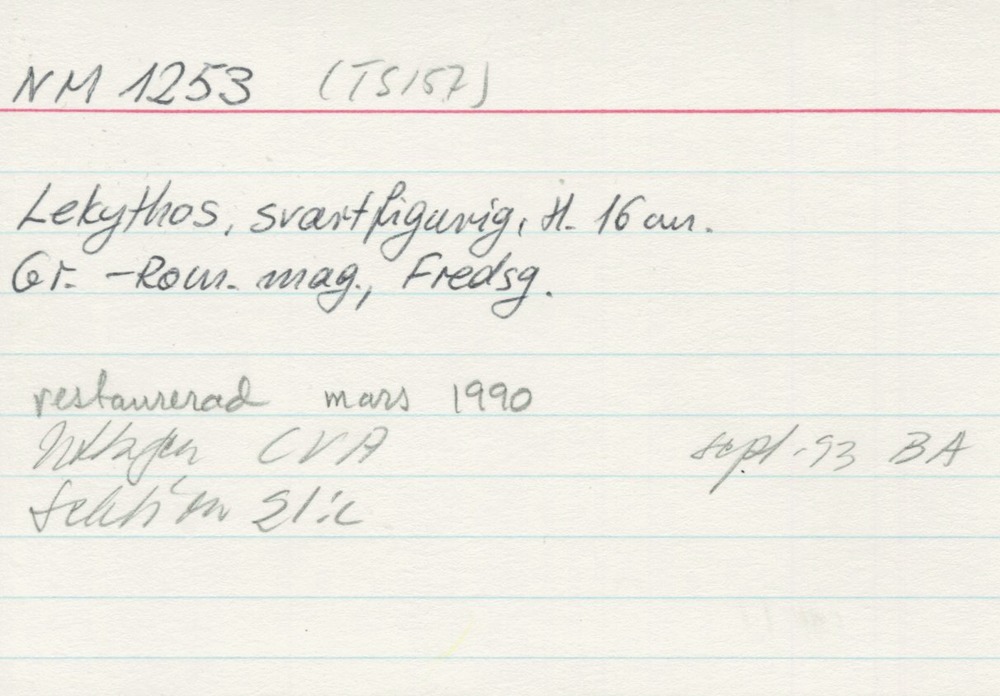 NM 1253 (TS157)
Lekythos, svartfigurig, H. 16 cm.
Gr. - Rom. mag., Fredsg.
restaurerad mars 1990
CVA sept -93 BA
Sektion